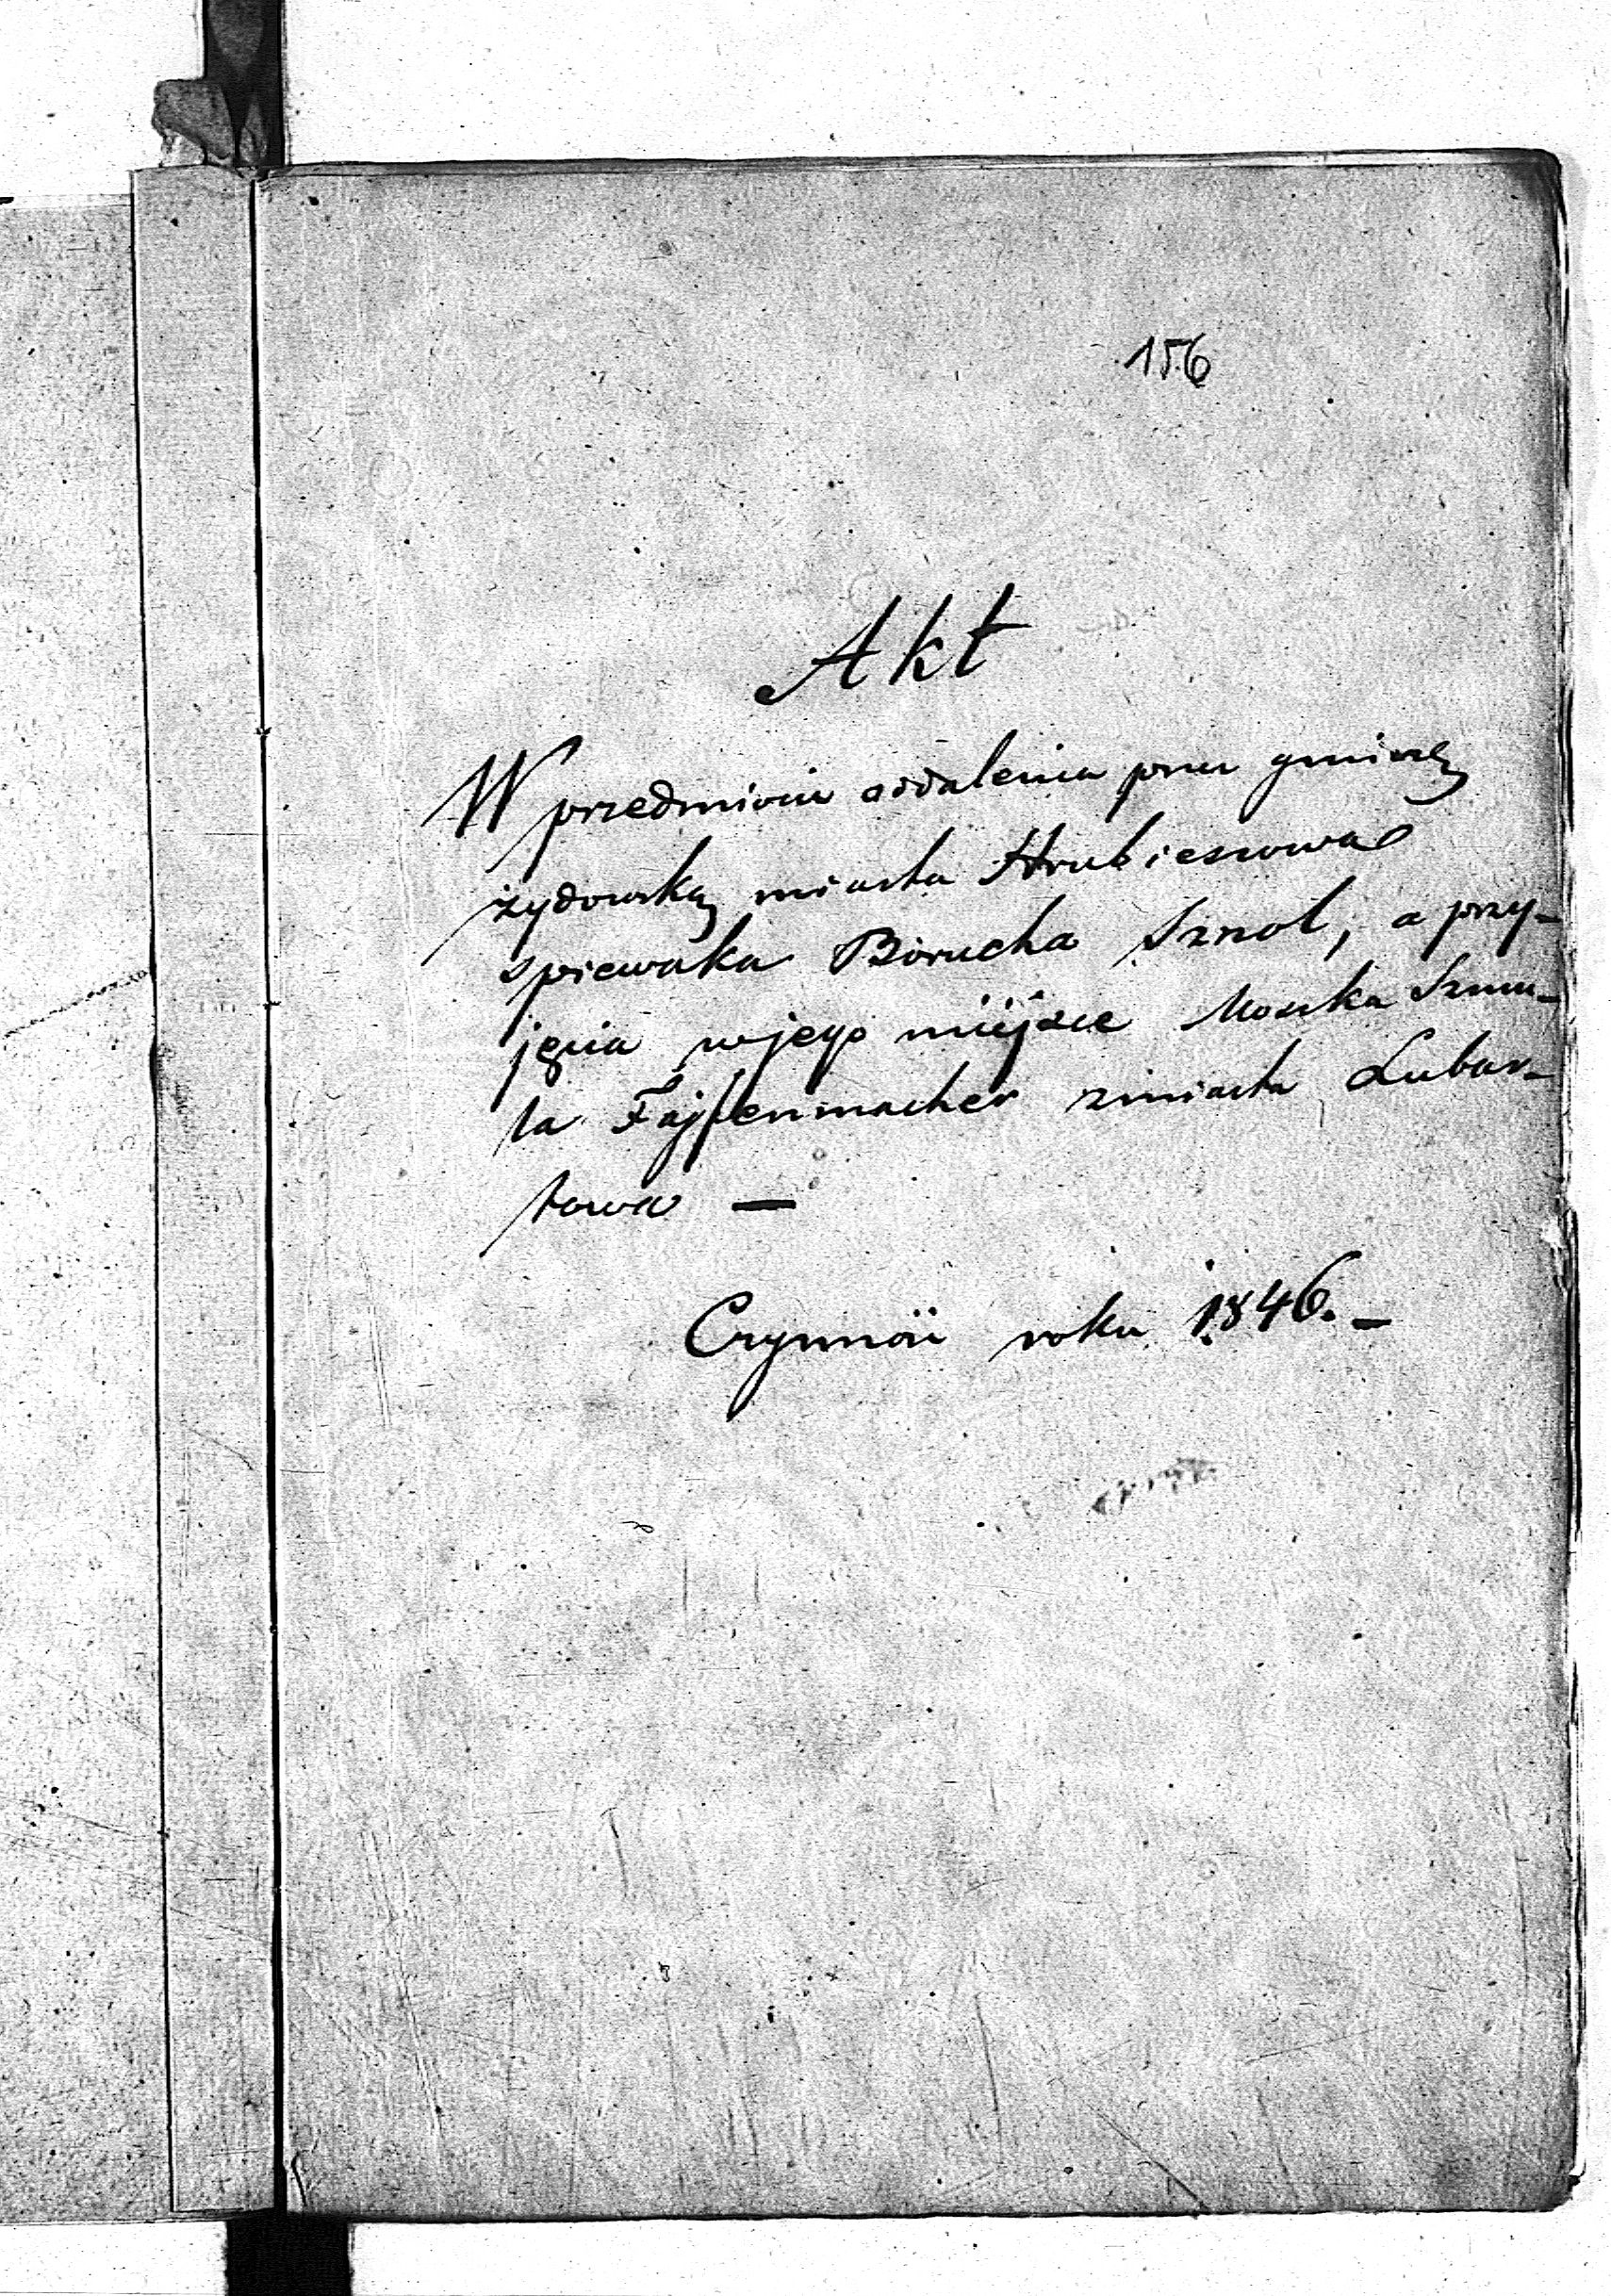 156
Akt
W przedmiocie oddalenia przez gminę
żydowską miasta Hrubieszowa
spiewaka Borucha Sznol, a przy-
jęcia w jego miéjsce Moszka Szmu-
la Fajfenmacher z miasta Lubar-
towa —
Czynność roku 1846. —